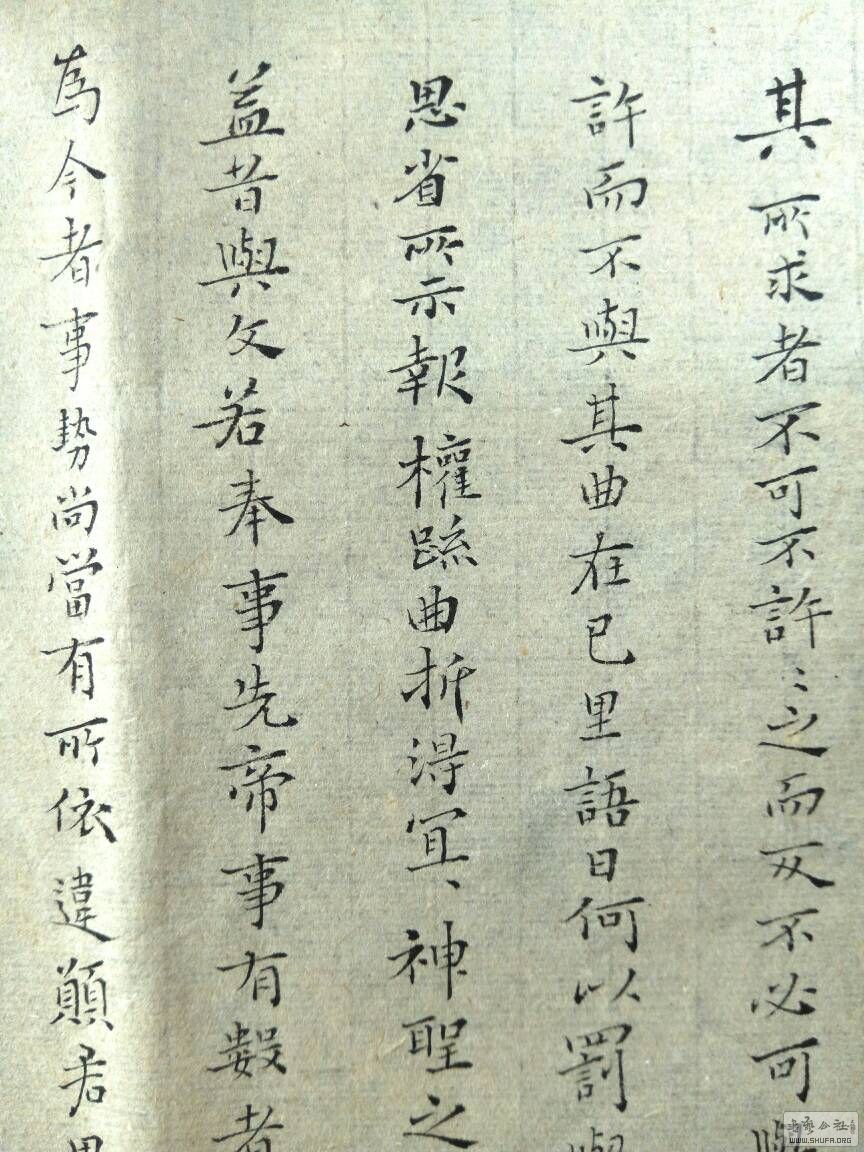 其所求者不可不許〻之而反不必可與
許而不與其曲在己里語曰何以罰與
思省所示報權疏曲折得宜〻神聖之
益昔與文若奉事先帝事有數者
為今者事勢尚當有所依違願君思
WWW.SHUFA.ORG